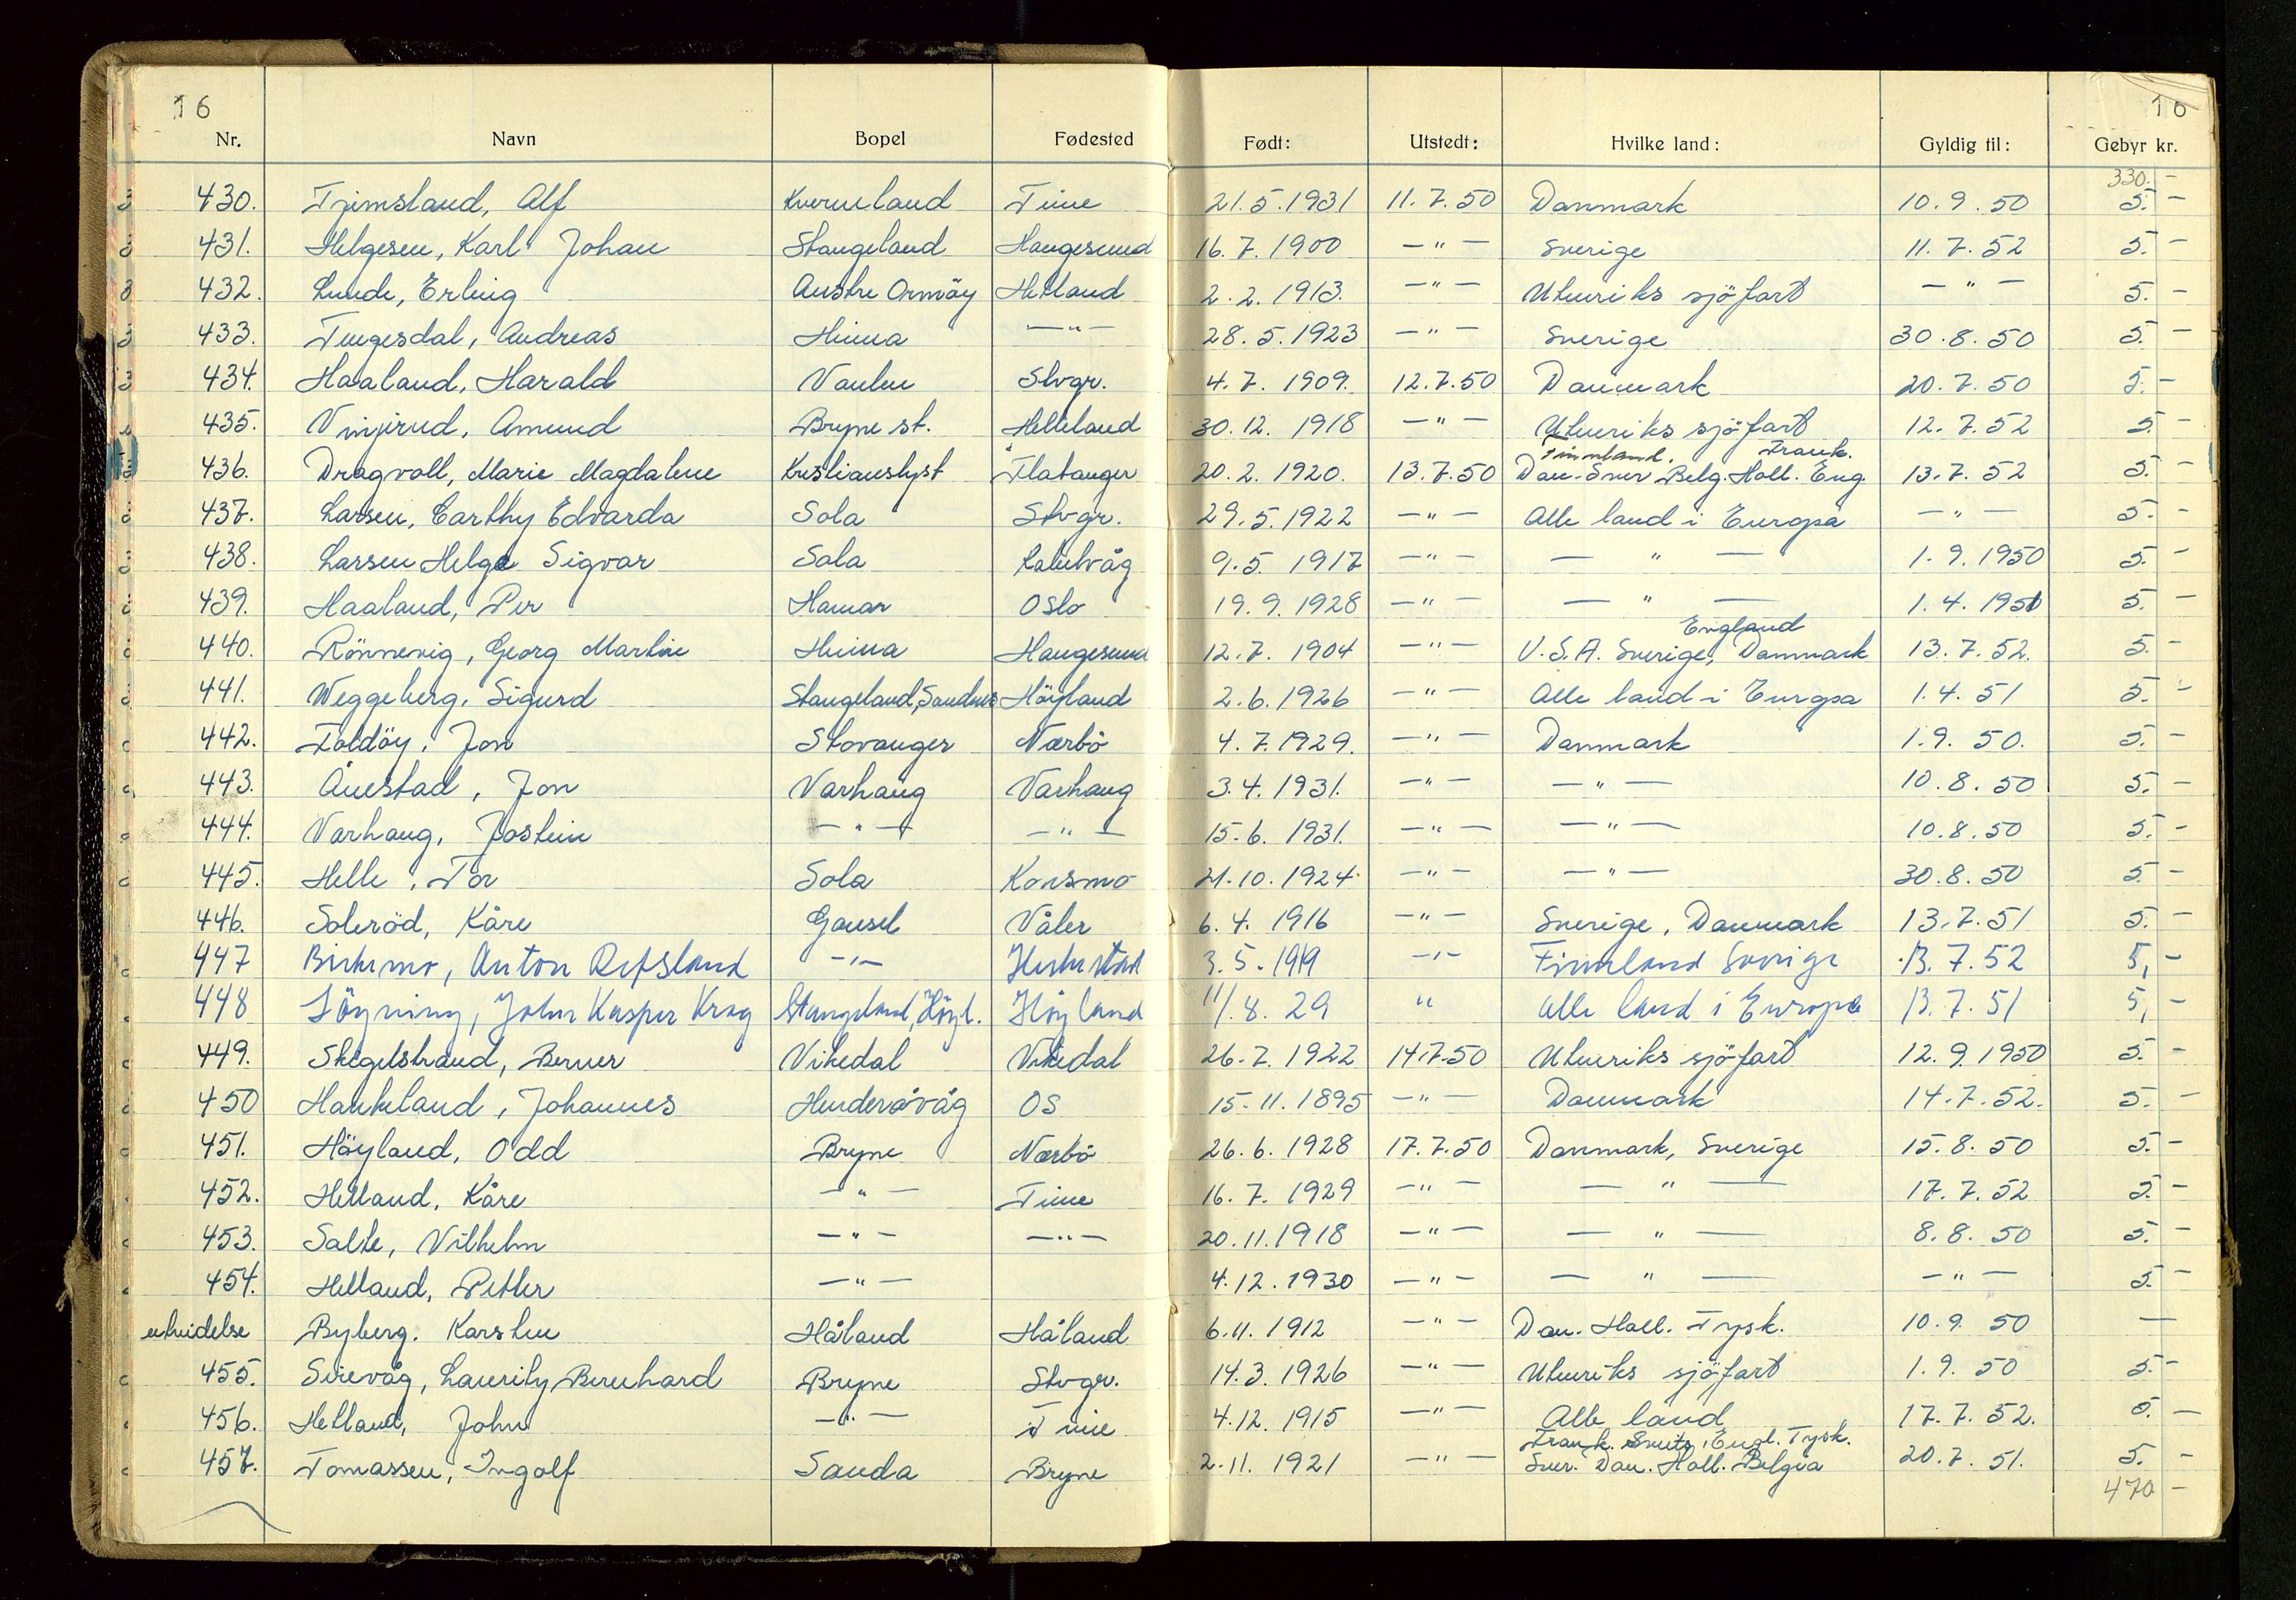 16 16
Nr. Navn Bopel Fødested Født: Utstedt: Hvilke land: Gyldig til: Gebyr kr.
330.-
430. Tjimsland, Alf Kverneland Time 21.5.1931 11.7.50 Danmark 10.9.50 5.-
431. Helgesen, Karl Johan Stangeland Haugesund 16.7.1900 -"- Sverige 11.7.52 5.-
432. Lunde, Erling Austre Ormöy Hetland 2.2.1913. -"- Utenriks sjöfart -"- 5.-
433. Tengesdal, Andreas Hinna -"- 28.5.1923 -"- Sverige 30.8.50 5.-
434. Haaland, Harald Vaulen Stvgr. 4.7.1909. 12.7.50 Danmark 20.7.50 5.-
435. Vinjerud, Amund Bryne st. Helleland 30.12.1918 -"- Utenriks sjöfart 12.7.52 5.-
Finnland. Frank.
436. Dragvoll, Marie Magdalene Kristianslyst Flatanger 20.2.1920. 13.7.50 Dan. Sver Belg. Holl. Eng. 13.7.52 5.-
437. Larsen, Carthy Edvarda Sola Stvgr. 29.5.1922 -"- Alle land i Europa -"- 5.-
438. Larsen Helge Sigvar Sola Kalvåg 9.5.1917 -"- -"- 1.9.1950 5.-
439. Haaland, Per Hamar Oslo 19.9.1928 -"- -"- 1.4.1951 5.-
England
440. Rönnevig, Georg Martin Hinna Haugesund 12.7.1904 -"- U.S.A. Sverige, Danmark 13.7.52. 5.-
441. Weggeberg, Sigurd Stangeland, Sandnes Höyland 2.6.1926 -"- Alle land i Europa 1.4.51 5.-
442. Foldöy, Jon Stavanger Nærbö 4.7.1929. -"- Danmark 1.9.50. 5.-
443. Ånestad, Jon Varhaug Varhaug 3.4.1931. -"- -"- 10.8.50 5.-
444. Varhaug, Jostein -"- -"- 15.6.1931. -"- -"- 10.8.50 5.-
445. Helle, Tor Sola Konsmo 21.10.1924. -"- -"- 30.8.50 5.-
446. Soleröd, Kåre Gausel Våler 6.4.1916 -"- Sverige, Danmark 13.7.51 5.-
447 Birkemo, Anton Refsland -"- Heskestad 3.5.1919 -"- Finnland Sverige 13.7.52 5,-
448 Lögning, John Kasper Krag Stangeland, Höyl. Höyland 11/8.29 " Alle land i Europa 13.7.51 5,-
449. Skegelstrand, Berner Vikedal Vikedal 26.7.1922 14.7.50 Utenriks sjöfart 12.9.1950 5.-
450 Haukeland, Johannes Hinderåvåg OS 15.11.1895 -"- Danmark 14.7.52. 5.-
451. Höyland, Odd Bryne Nærbö 26.6.1928 17.7.50 Danmark, Sverige 15.8.50 5.-
452. Helland, Kåre -"- Time 16.7.1929 -"- -"- 17.7.52 5.-
453. Salte, Vilhelm -"- -"- 20.11.1918 -"- -"- 8.8.50 5.-
454. Helland, Petter -"- 4.12.1930 -"- -"- -"- 5.-
Byberg, Karsten Håland Håland 6.11.1912 -"- Dan. Holl. Tysk. 10.9.50 -
455. Sirevåg, Lauritz Bernhard Bryne Stvgr. 14.3.1926 -"- Utenriks sjöfart 1.9.50 5.-
456. Helland, John -"- Time 4.12.1915 -"- Alle land 17.7.52. 5.-
Frank. Sveits, Engl. Tysk.
457. Tomassen, Ingolf Sauda Bryne 2.11.1921 -"- Sver. Dan. Holl. Belgia 20.7.51. 5.-
470-